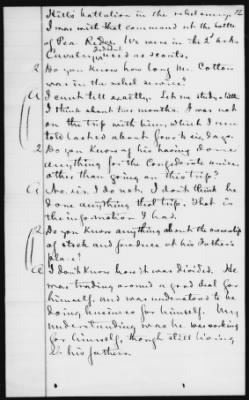 Hill's battalion in the rebel army. 12
I was with that command at the battle
of Pea Ridge. We were in the 2d Ark
Cavalry used as scouts.
Q Do you know how long Mr. Cotton
was in the rebel service?
A I can't tell exactly. Let me study a little.
I think about two months. I was not
on the trip with him, which I
told lasted about four to six days.
Q Do you know of his having done
anything for the Confederate
other than going on this trip?
A No. sir, I do not. I don't think he
done anything that trip. That is
the information I had.
Q Do you know anything about the ownership
of stock and produce at his father's
place?
A I don't know how it was divided. He
was trading around a good deal for
himself, and was understood to be
doing business for himself. My
understanding was he was working
for himself, though still living
at his fathers.